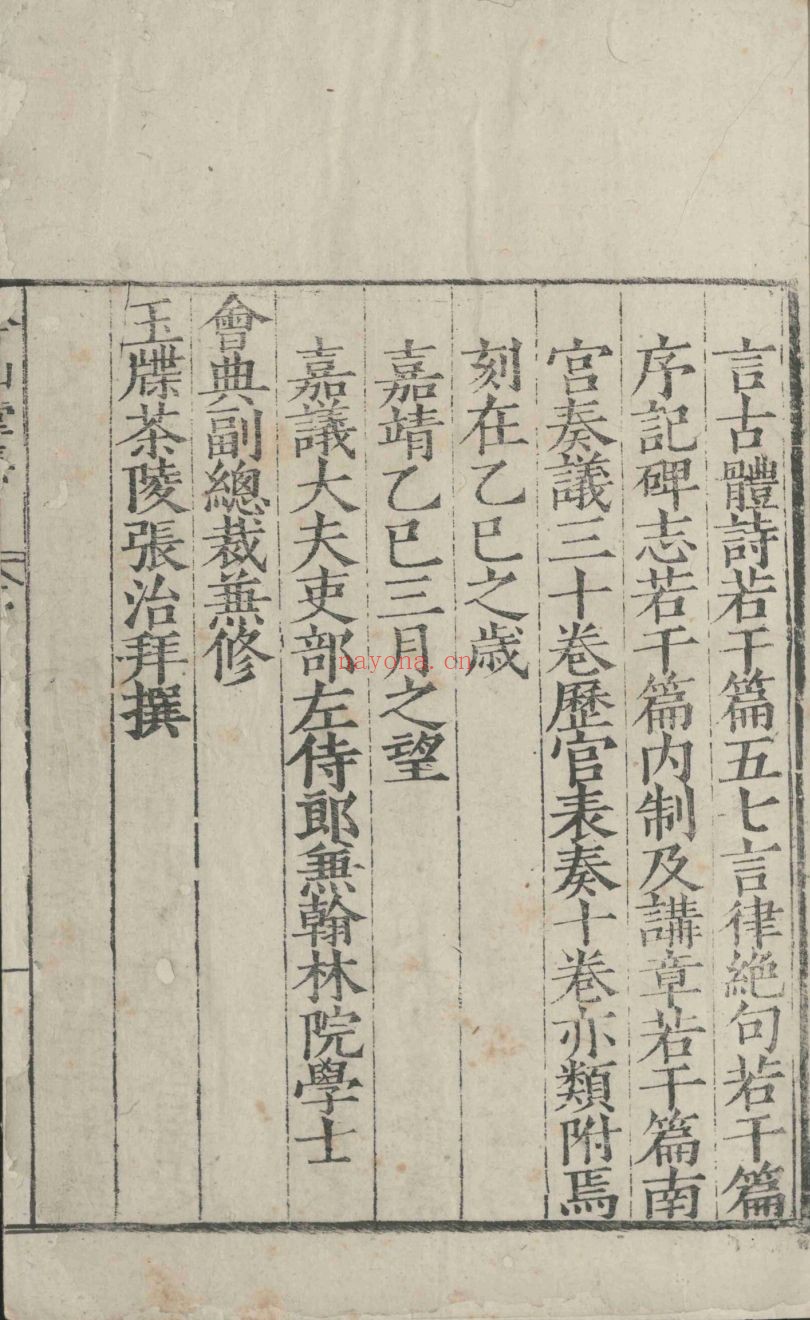 言古體詩若干篇五七言律絶句若干篇
序記碑志若干篇内制及講章若干篇南
宫奏議三十卷歷官表奏十卷亦類附焉
刻在乙巳之歲
嘉靖乙巳三月之望
嘉議大夫吏部左侍郎兼翰林院學士
會典副總裁兼修
玉牒茶陵張治拜撰
nayona.cn